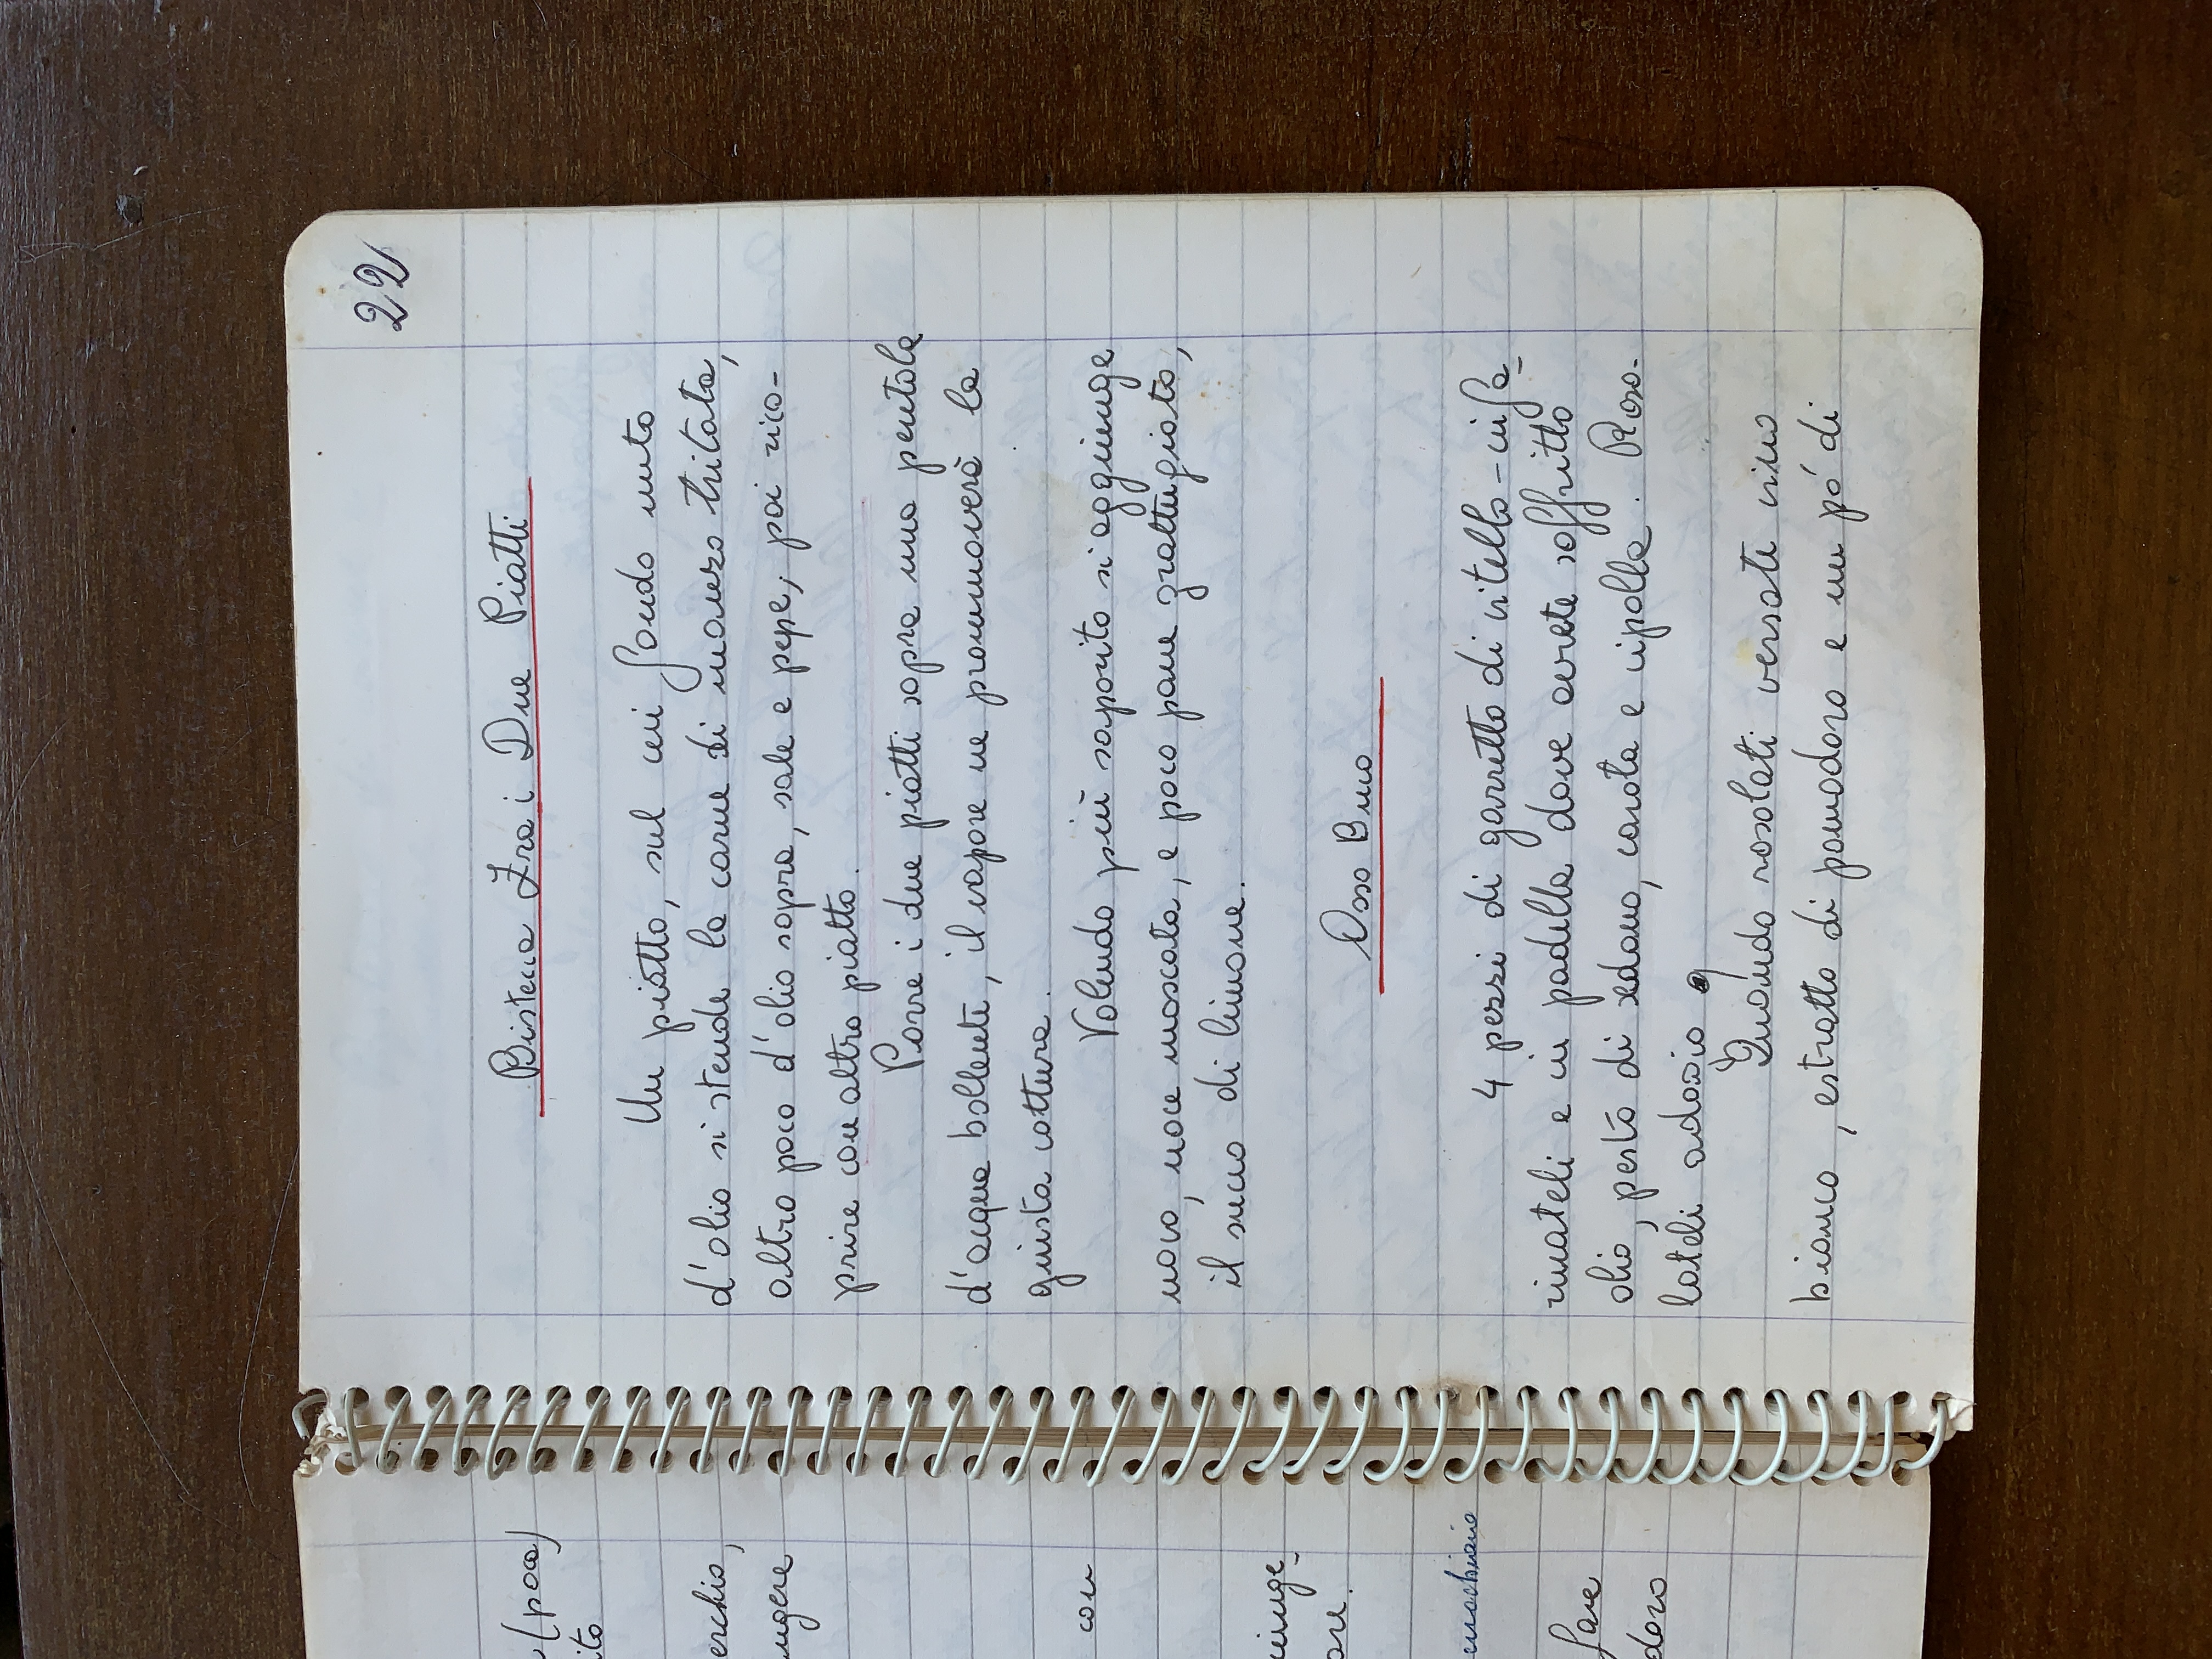 (poca)
ito
erchio,
ungere
con
iunge_
ore.
fare
doro
22
Bistecca Fra i Due Piatti
Un piatto, sul cui fondo unto
d'olio si stende la carne di manzo tritata,
altro poco d'olio sopra, sale e pepe, poi rico-
prire con altro piatto.
Porre i due piatti sopra una pentola
d'acqua bollente, il vapore ne prommoverà la
giusta cottura.
Volendo più saporito si aggiunge
uovo, noce moscata, e poco pane grattugiato,
il succo di limone.
Osso Buco
4 pezzi di garretto di vitello - infa_
rinateli e in padella dove avrete soffritto
olio, pesto di sedano, carota e cipolla. Roso-
lateli adagio
Quando rosolati versate vino
bianco, estratto di pomodoro e un pó di